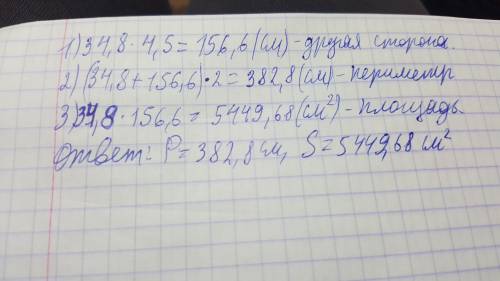 1) 34,8 · 4,5 = 156,6 (см) - другая сторона.
2) (34,8 + 156,6) · 2 = 382,8 (см) - периметр
3) 34,8 · 156,6 = 5449,68 (см²) - площадь.
Ответ: P = 382,8 см, S = 5449,68 см²